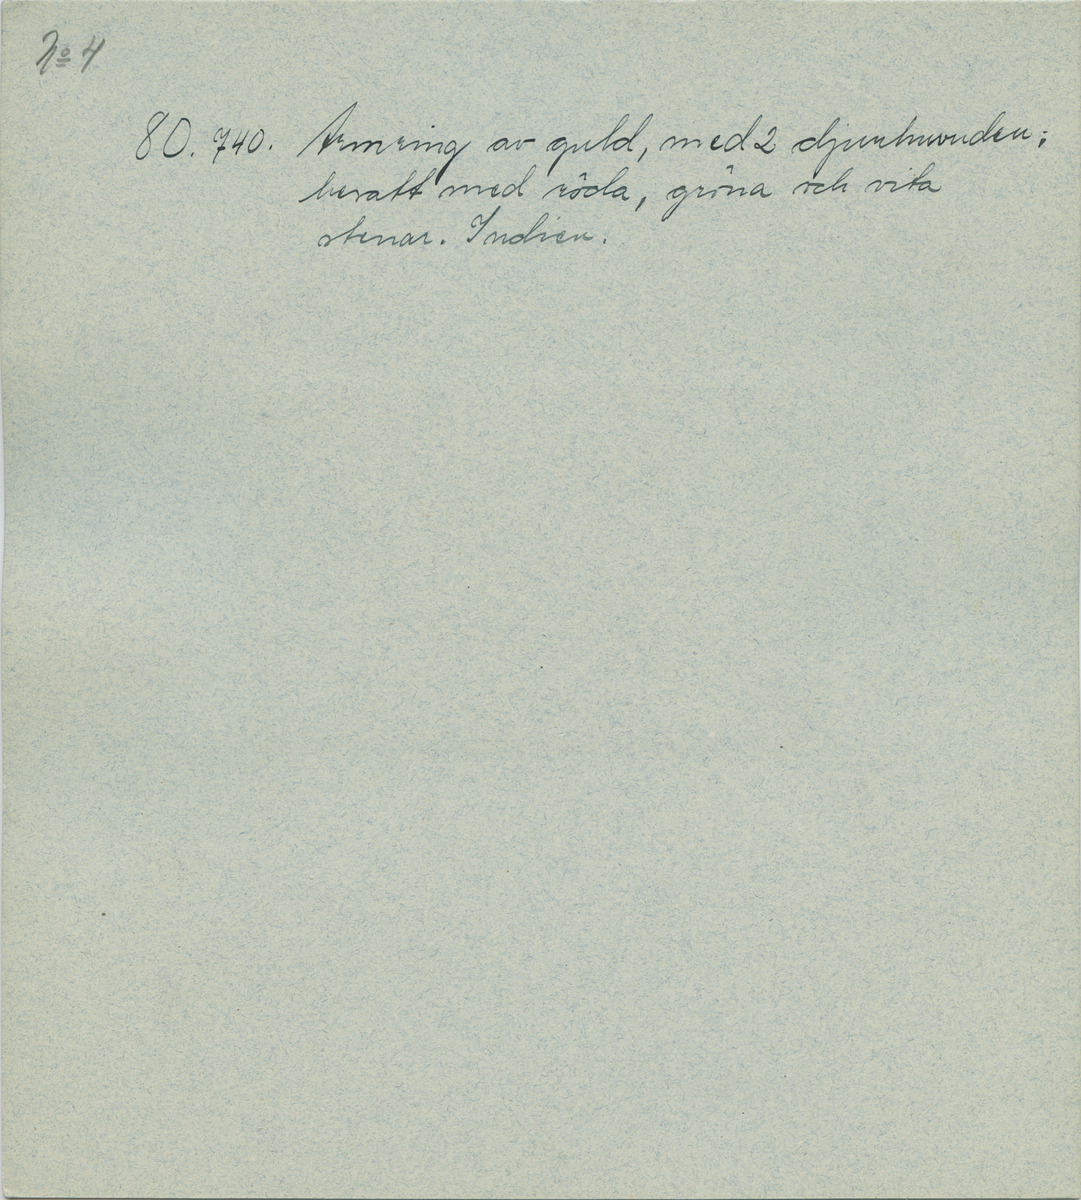 No 4
80.740. Armring av guld, med 2 djurhuvuden;
besatt med röda, gröna och vita
stenar. Indien.